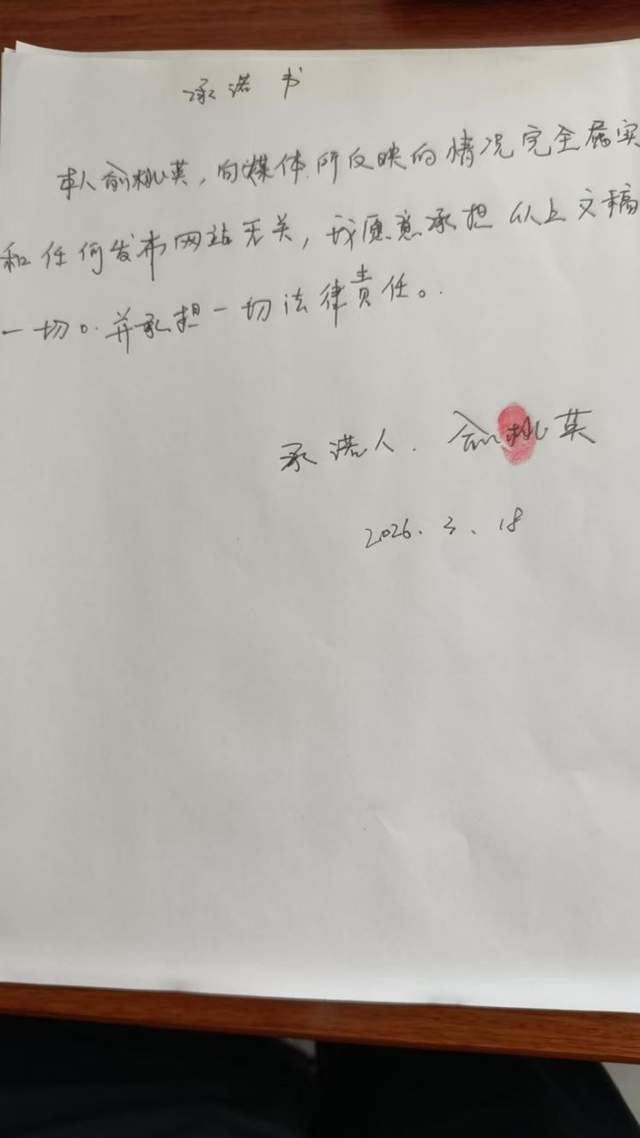 承诺书
本人俞桃英，向媒体所反映的情况完全属实
和任何发布网站无关，我愿意承担以上文稿
一切。并承担一切法律责任。
承诺人．俞桃英
2026.3.18